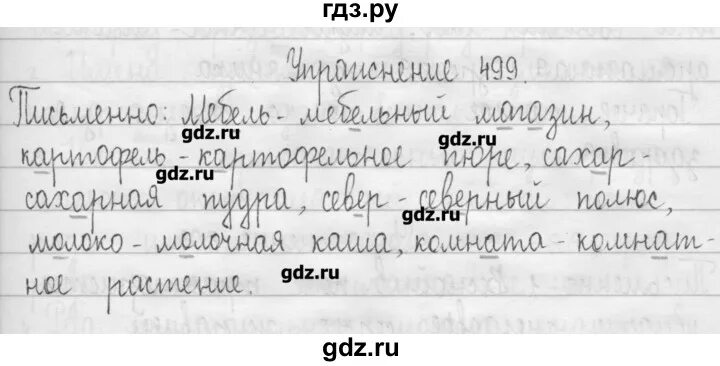 гдз.ру
Упражнение 499.
Письменно: Мебель - мебельный магазин,
gdz.ru gdz.ru
картофель - картофельное пюре, сахар-
gdz.ru
сахарная пудра, север - северный полюс,
gdz.ru
молоко - молочная каша, комната - комнат-
gdz.ru
ное растение.
gdz.ru